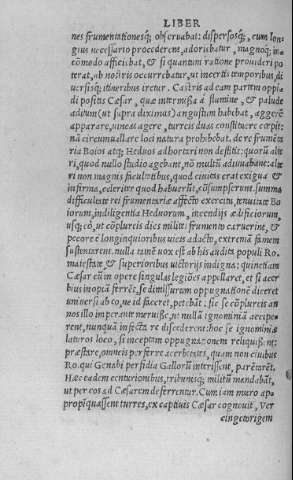 LIBER
nes frumentationesq; obseruabat: dispersosq;, cum lon
gius necessario procederent, adoriebatur, magnoq; in
cōmodo afficiebat, & si quantum ratione prouideri po
terat, ab nostris occurrebatur, ut incertis temporibus di
uersisq; itineribus iretur. Castris ad eam partem oppi
di positis Cæsar, quæ intermissa à flumine, & palude
aditum (ut supra diximus) angustum habebat, aggerē
apparare, uineas agere, turreis duas constituere cœpit:
nā circumuallare loci natura prohibebat. de re frumēta
ria Boios atq; Heduos adhortari non destitit: quorū alte
ri, quod nullo studio agebant, nō multū adiuuabant: alte
ri non magnis facultatibus, quod ciuitas erat exigua &
infirma, celeriter quod habuerūt, cōsumpserunt. summa
difficultate rei frumentariæ affecto exercitu, tenuitate Bo
iorum, indiligentia Heduorum, incendijs ædificiorum,
usq; eò, ut cōplureis dies milites frumento caruerint, &
pecore è longinquioribus uicis adacto, extremā famem
sustentarent. nulla tamē uox est ab his audita populi Ro.
maiestate, & superioribus uictorijs indigna: quinetiam
Cæsar cùm in opere singulas legiões appellaret, et si acer
bius inopiā ferrēt, se dimissurum oppugnationē diceret
uniuersi ab eo, ne id faceret, petebāt: sic se cōplureis an
nos illo imperante meruisse, ut nullam ignominiā accipe
rent, nunquā infecta re discederent: hoc se ignominiæ
laturos loco, si inceptam oppugnationem reliquissent:
præstare, omneis perferre acerbitates, quam non ciuibus
Ro. qui Genabi perfidia Gallorū interissent, parētarēt.
Hæc eadem centurionibus, tribunisq; militū mandabāt,
ut per eos ad Cæsarem deferrentur. Cum iam muro ap
propīquassent turres, ex captiuis Cæsar cognouit, Ver
cingetorigem